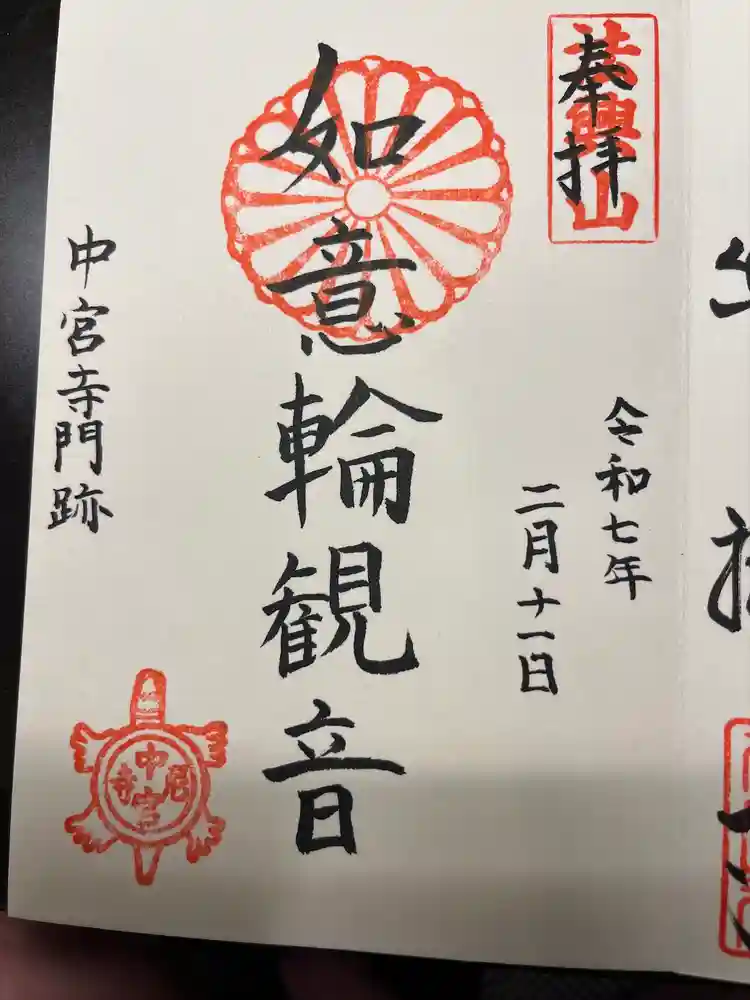 奉拝
法興山
令和七年
二月十一日
如意輪観音
中宮寺門跡
中宮寺